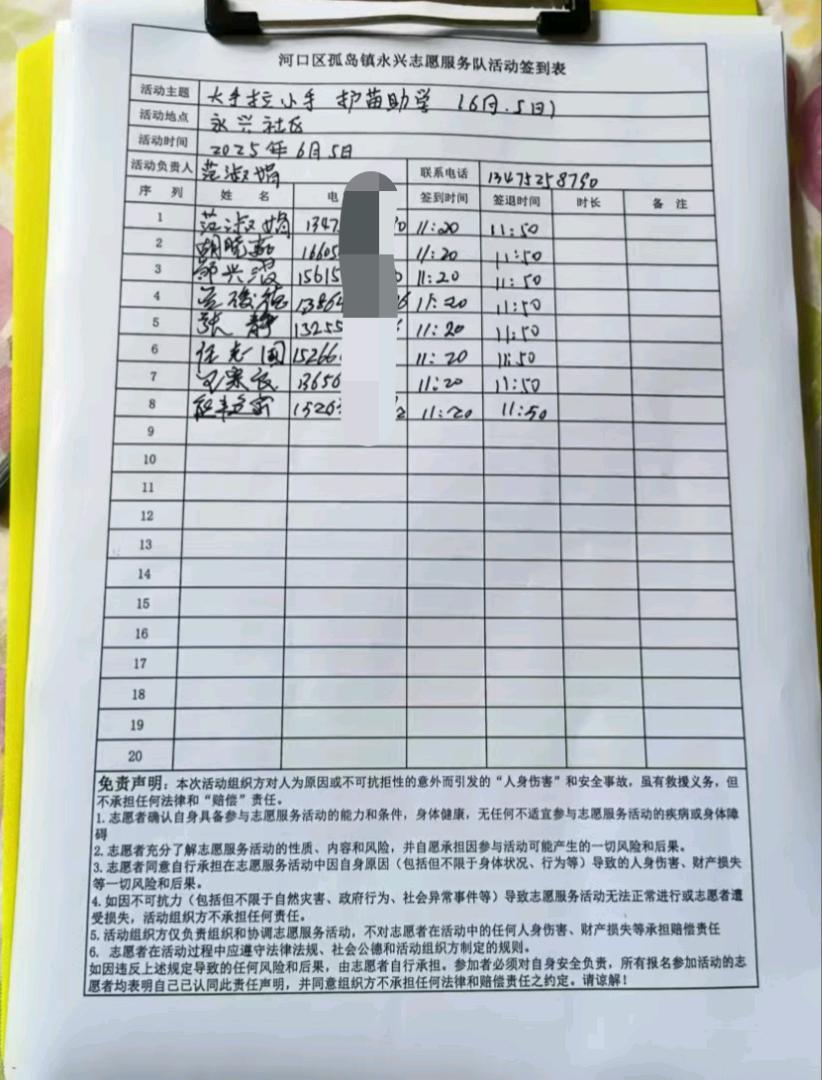 河口区孤岛镇永兴志愿服务队活动签到表
活动主题 大手拉小手 护苗助学 (6月.5日)
活动地点 永兴社区
活动时间 2025年6月5日
活动负责人 范淑娟 联系电话 13475258790
序 列 姓 名 电 签到时间 签退时间 时长 备 注
1 范淑娟 1347 0 11:20 11:50
2 16605 11:20 11:50
3 邹兴波 15615 0 11:20 11:50
4 13864 6 11:20 11:50
5 张静 13255 11:20 11:50
6 任志国 15266 11:20 11:50
7 13656 11:20 11:50
8 1526 2 11:20 11:50
9
10
11
12
13
14
15
16
17
18
19
20
免责声明：本次活动组织方对人为原因或不可抗拒性的意外而引发的“人身伤害”和安全事故，虽有救援义务，但
不承担任何法律和“赔偿”责任。
1. 志愿者确认自身具备参与志愿服务活动的能力和条件，身体健康，无任何不适宜参与志愿服务活动的疾病或身体障
碍
2. 志愿者充分了解志愿服务活动的性质、内容和风险，并自愿承担因参与活动可能产生的一切风险和后果。
3. 志愿者同意自行承担在志愿服务活动中因自身原因（包括但不限于身体状况、行为等）导致的人身伤害、财产损失
等一切风险和后果。
4. 如因不可抗力（包括但不限于自然灾害、政府行为、社会异常事件等）导致志愿服务活动无法正常进行或志愿者遭
受损失，活动组织方不承担任何责任。
5. 活动组织方仅负责组织和协调志愿服务活动，不对志愿者在活动中的任何人身伤害、财产损失等承担赔偿责任
6. 志愿者在活动过程中应遵守法律法规、社会公德和活动组织方制定的规则。
如因违反上述规定导致的任何风险和后果，由志愿者自行承担。参加者必须对自身安全负责，所有报名参加活动的志
愿者均表明自己已认同此责任声明，并同意组织方不承担任何法律和赔偿责任之约定。请谅解！